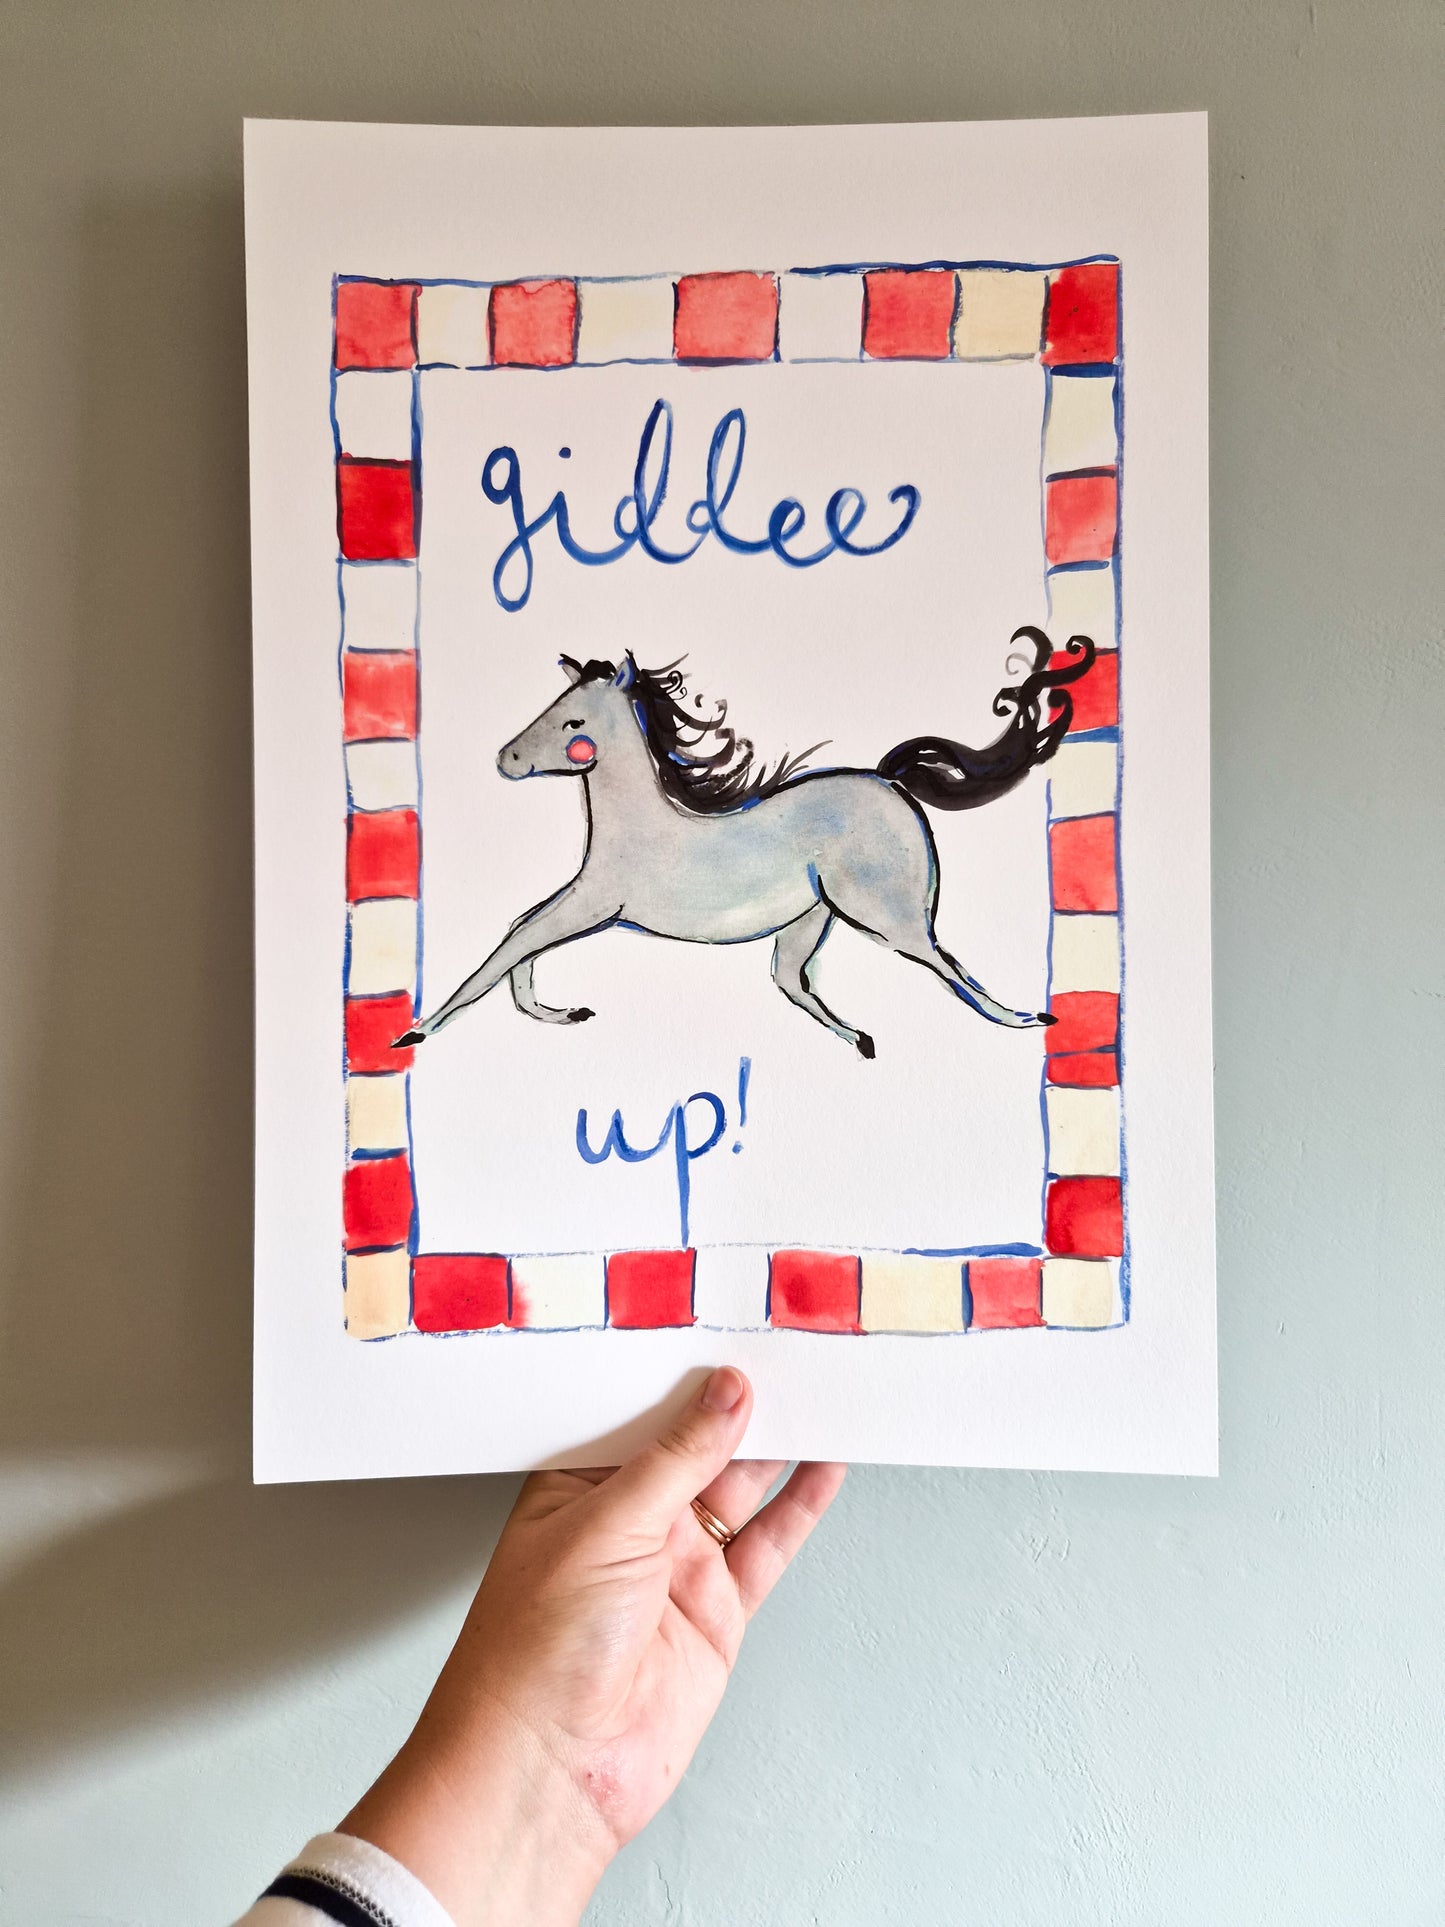 giddee
up!